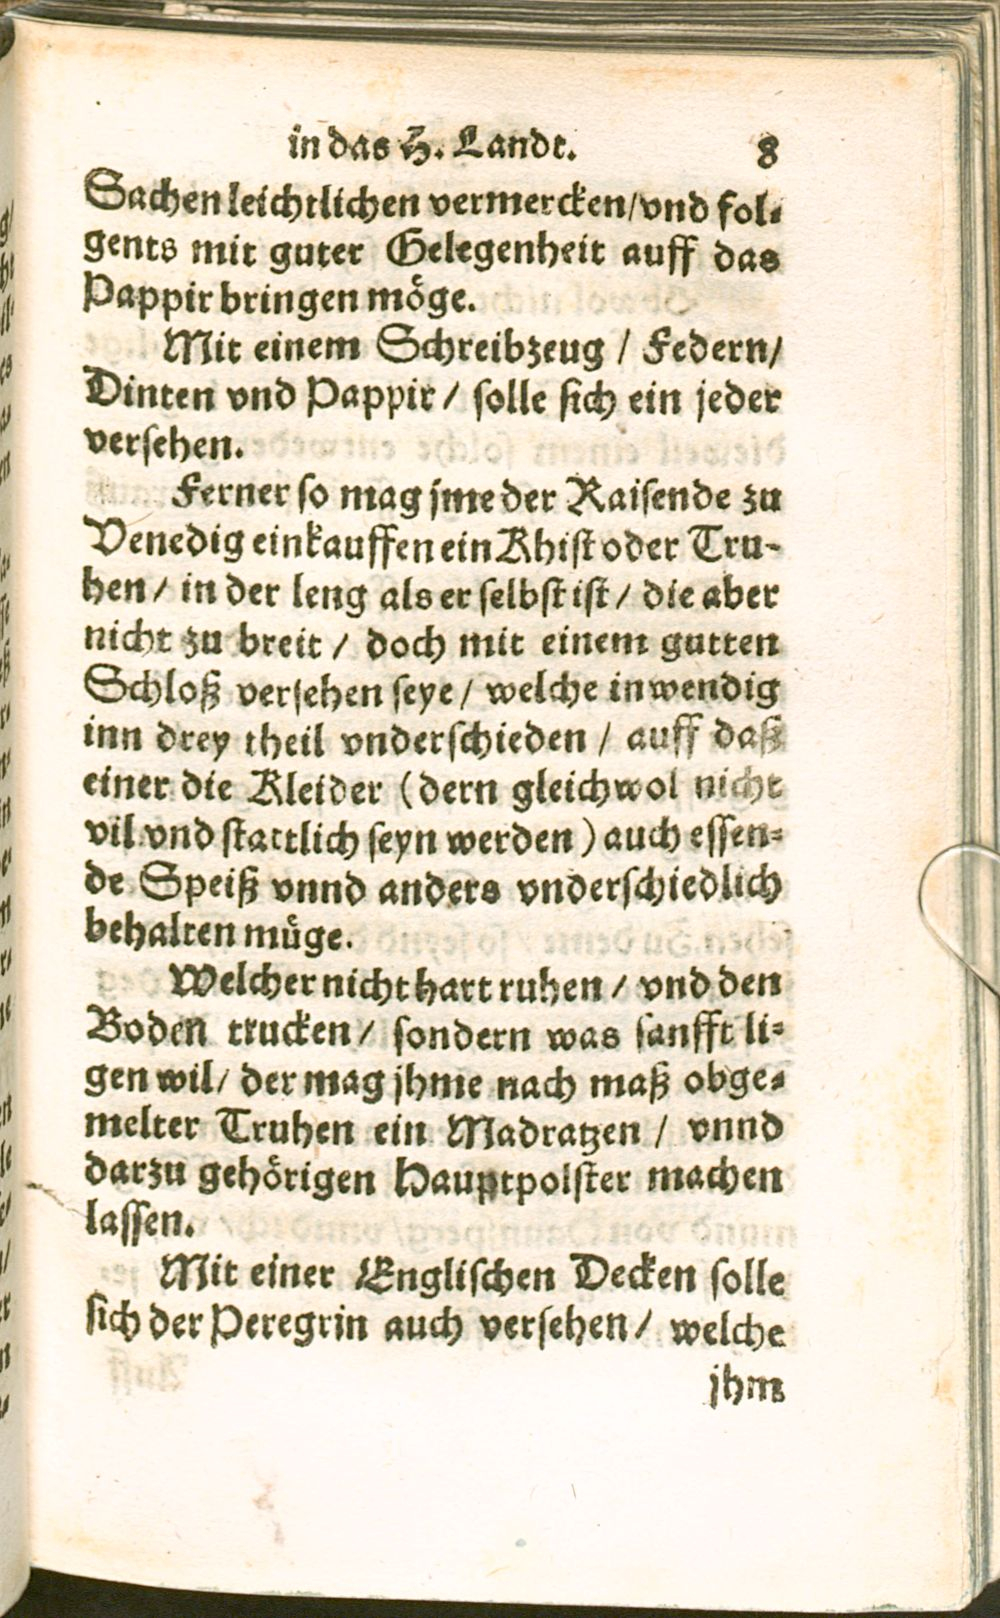 in das H. Landt. 8
Sachen leichtlichen vermercken/vnd fol-
gents mit guter Gelegenheit auff das
Pappir bringen möge.
Mit einem Schreibzeug / Federn/
Dinten vnd Pappir / solle sich ein jeder
versehen.
Ferner so mag jme der Raisende zu
Venedig einkauffen ein Khist oder Tru-
hen / in der leng als er selbst ist / die aber
nicht zu breit / doch mit einem gutten
Schloß versehen seye / welche inwendig
inn drey theil vnderschieden / auff daß
einer die Kleider (dern gleichwol nicht
vil vnd stattlich seyn werden) auch essen-
de Speiß vnnd anders vnderschiedlich
behalten müge.
Welcher nicht hart ruhen / vnd den
Boden trucken / sondern was sanfft li-
gen wil/ der mag jhme nach maß obge-
melter Truhen ein Madratzen / vnnd
darzu gehörigen Hauptpolster machen
lassen.
Mit einer Englischen Decken solle
sich der Peregrin auch versehen / welche
jhm